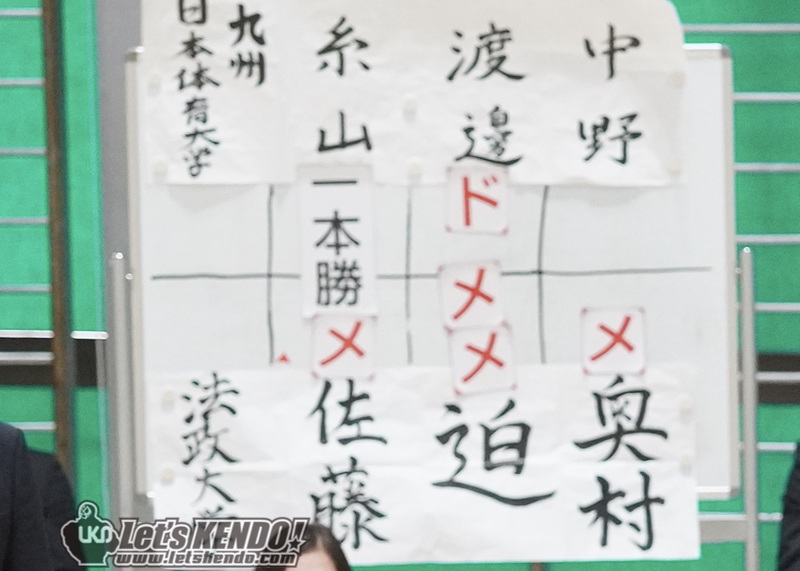 九州
日本体育大学
糸山
渡邉
中野
一本勝
ド
メ
メ
メ
メ
法政大学
佐藤
迫
奥村
UKD Let's KENDO!
www.letskendo.com